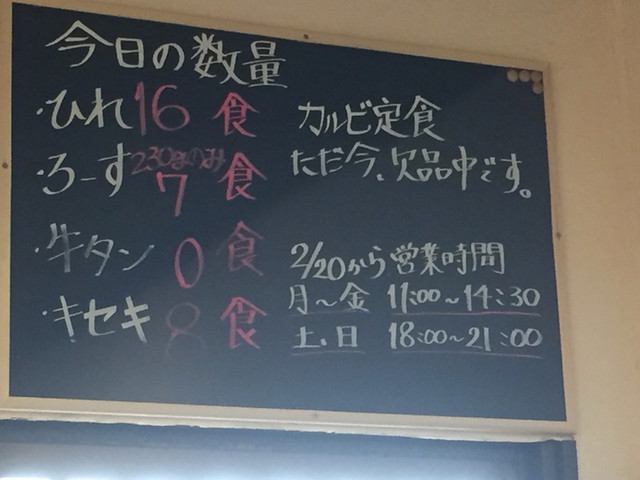 今日の数量
・ひれ 16 食
・ろーす 230gのみ 7 食
・牛タン 0 食
・キセキ 8 食
カルビ定食
ただ今、欠品中です。
2/20から営業時間
月～金 11:00～14:30
土、日 18:00～21:00